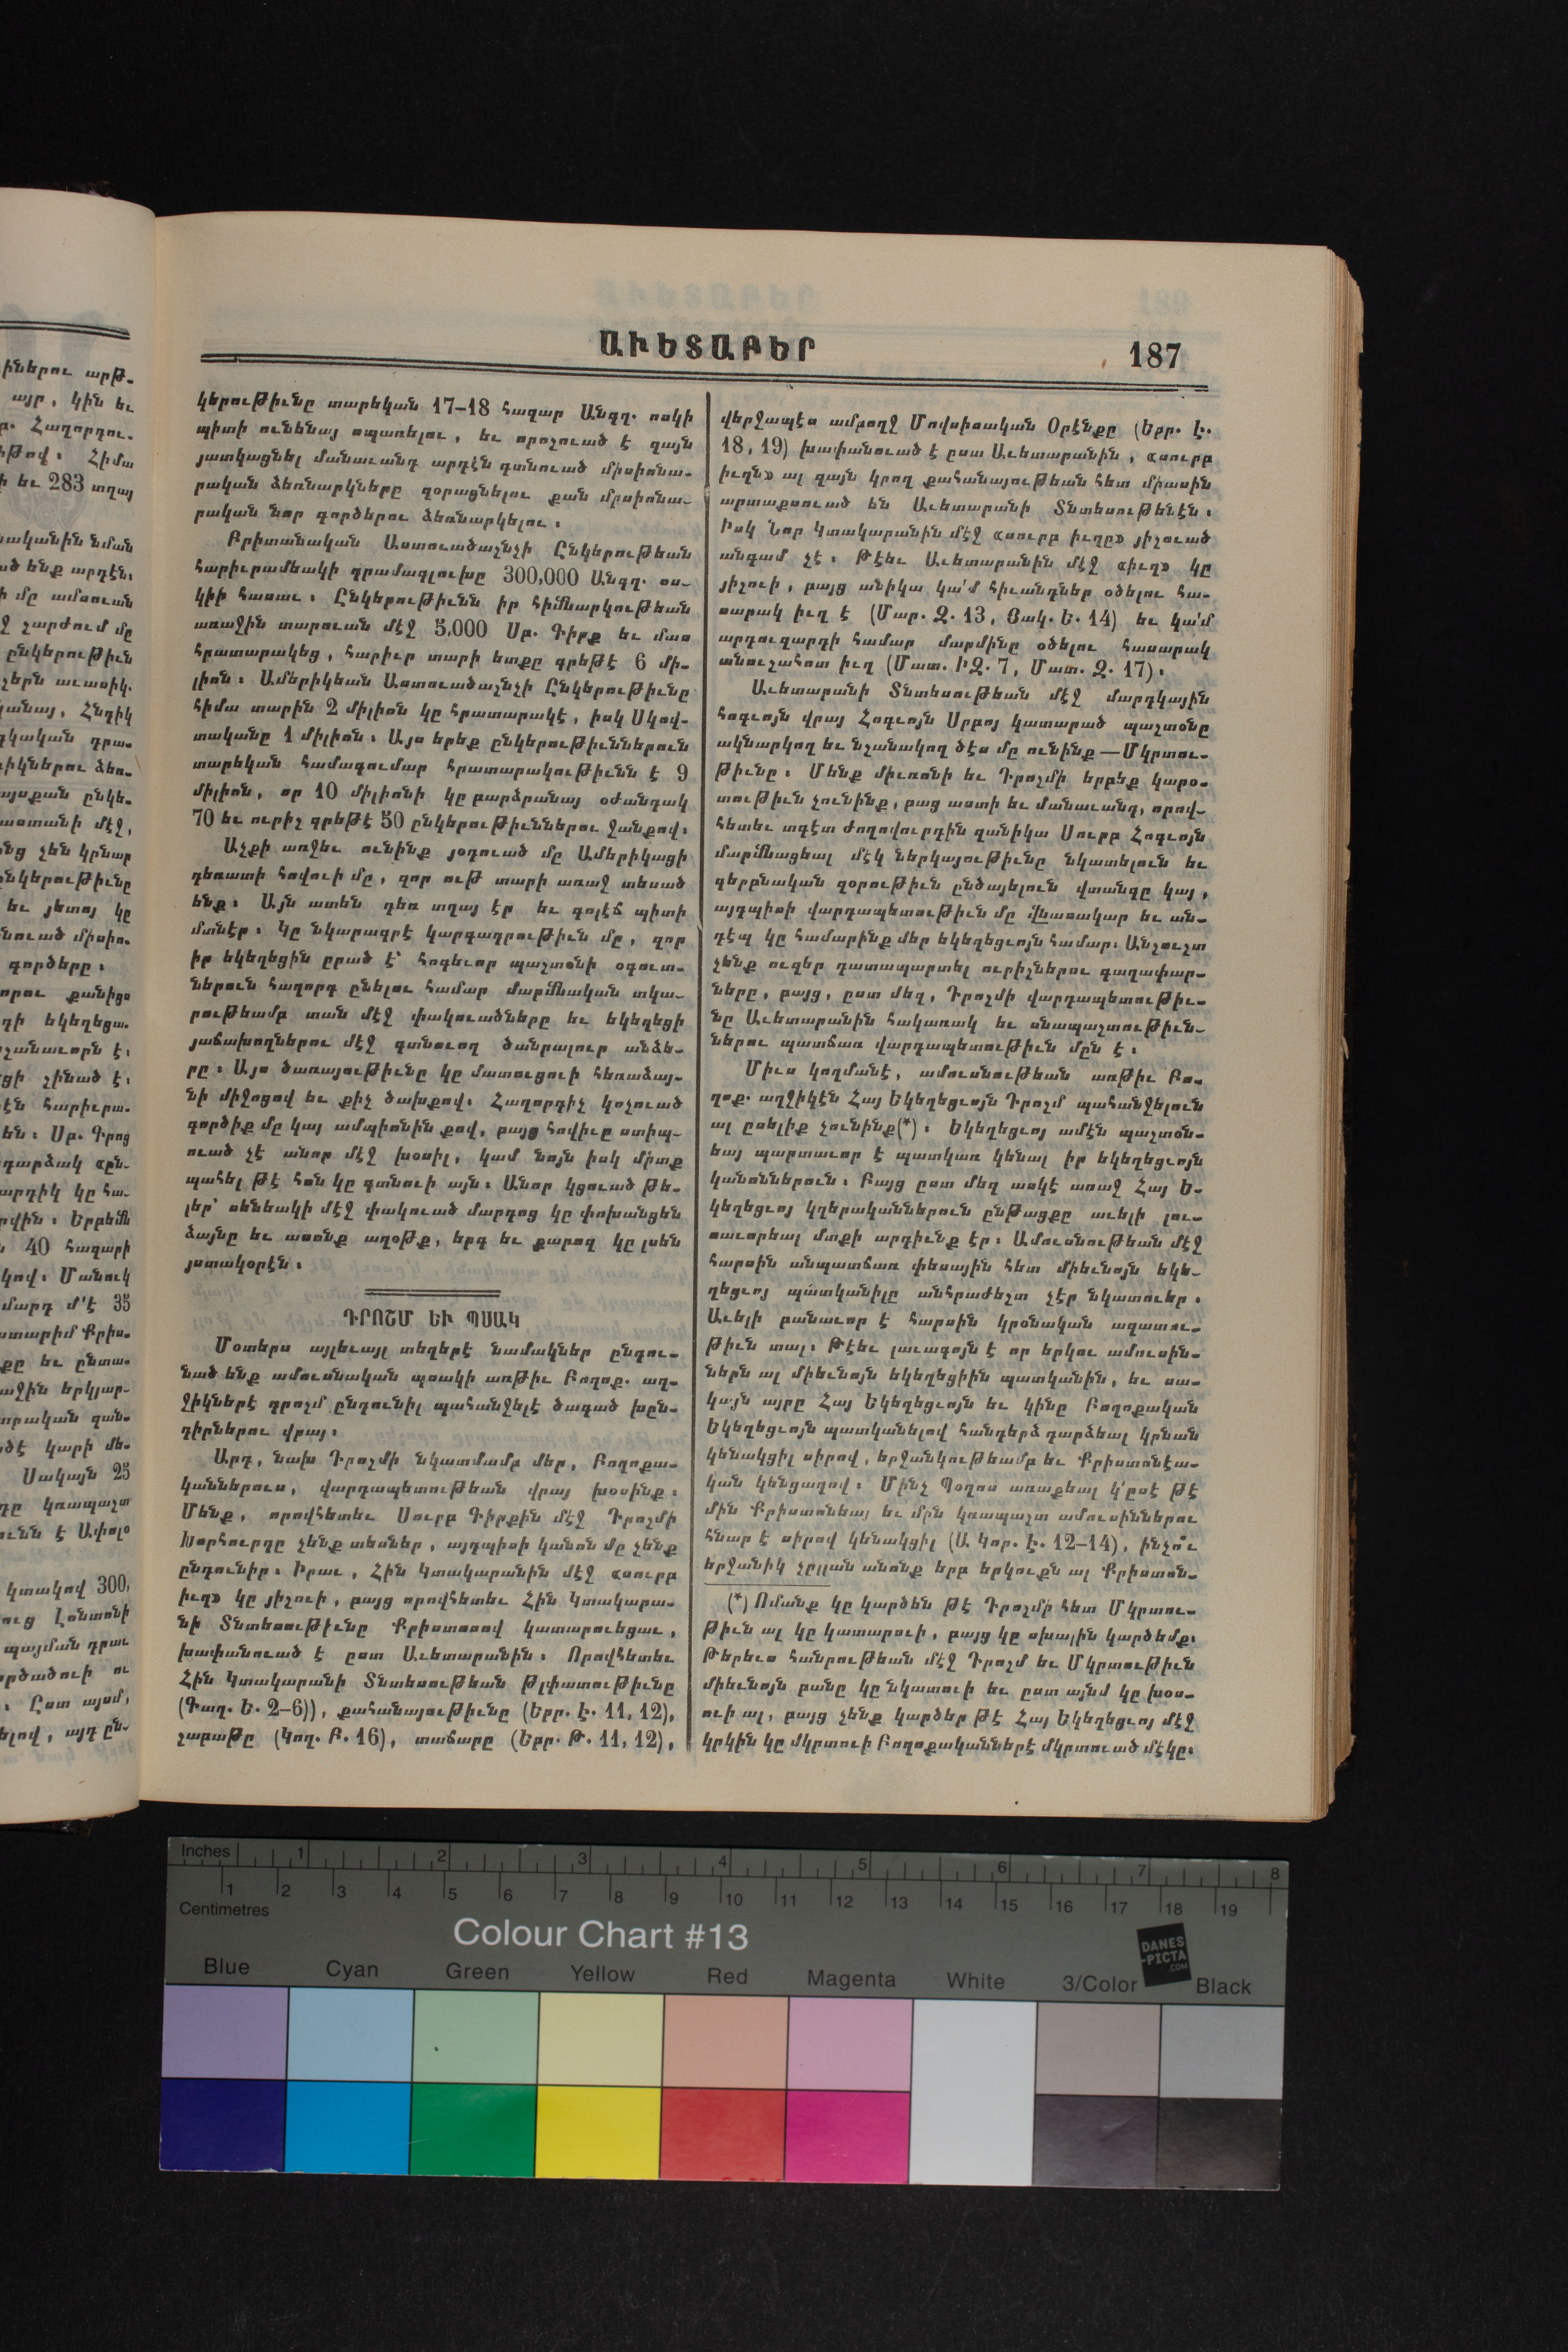 ԱՒԵՏԱԲԵՐ
187
կերութիւնը տարեկան 17–18 հազար Անգղ. ոսկի
պիտի ունենայ սպառելու, եւ որոշուած է զայն
յատկացնել մանաւանդ արդէն գտնուած միսիոնա-
րական ձեռնարկները զօրացնելու քան միսիոնա-
րական նոր գործերու ձեռնարկելու։
Բրիտանական Աստուածաշնչի Ընկերութեան
հարիւրամեակի դրամագլուխը 300,000 Անգղ. ոս-
կիի հասաւ։ Ընկերութիւնն իր հիմնարկութեան
առաջին տարուան մէջ 5,000 Սբ. Գիրք եւ մաս
հրատարակեց, հարիւր տարի ետքը գրեթէ 6 մի-
լիոն։ Ամերիկեան Աստուածաշնչի Ընկերութիւնը
հիմա տարին 2 միլիոն կը հրատարակէ, իսկ Սկով-
տականը 1 միլիոն։ Այս երեք ընկերութիւններուն
տարեկան համագումար հրատարակութիւնն է 9
միլիոն, որ 10 միլիոնի կը բարձրանայ օժանդակ
70 եւ ուրիշ գրեթէ 50 ընկերութիւններու ջանքով։
Աչքի առջեւ ունինք յօդուած մը Ամերիկացի
դեռատի հովուի մը, զոր ութ տարի առաջ տեսած
ենք։ Այն ատեն դեռ տղայ էր եւ գոլէճ պիտի
մտնէր։ Կը նկարագրէ կարգադրութիւն մը, զոր
իր եկեղեցին ըրած է՝ հոգեւոր պաշտօնի օգուտ-
ներուն հաղորդ ընելու համար մարմնական տկա-
րութեամբ տան մէջ փակուածները եւ եկեղեցի
յաճախողներու մէջ գտնուող ծանրալուր անձե-
րը։ Այս ծառայութիւնը կը մատուցուի հեռաձայ-
նի միջոցով եւ քիչ ծախքով։ Հաղորդիչ կոչուած
գործիք մը կայ ամպիոնին քով, բայց հովիւը ստիպ-
ուած չէ անոր մէջ խօսիլ, կամ նոյն իսկ միտք
պահել թէ հոն կը գտնուի այն։ Անոր կցուած թե-
լեր՝ սենեակի մէջ փակուած մարդոց կը փոխանցեն
ձայնը եւ ասոնք աղօթք, երգ եւ քարոզ կը լսեն
յստակօրէն։
ԴՐՈՇՄ ԵՒ ՊՍԱԿ
Մօտերս այլեւայլ տեղերէ նամակներ ընդու-
նած ենք ամուսնական պսակի առթիւ Բողոք. աղ-
ջիկներէ դրոշմ ընդունիլ պահանջելէ ծագած խըն-
դիրներու վրայ։
Արդ, նախ Դրոշմի նկատմամբ մեր, Բողոքա-
կաններուս, վարդապետութեան վրայ խօսինք։
Մենք, որովհետեւ Սուրբ Գիրքին մէջ Դրոշմի
Խորհուրդը չենք տեսներ, այդպիսի կանոն մը չենք
ընդունիր։ Իրաւ, Հին Կտակարանին մէջ «սուրբ
իւղ» կը յիշուի, բայց որովհետեւ Հին Կտակարա-
նի Տնտեսութիւնը Քրիստոսով կատարուեցաւ,
խափանուած է ըստ Աւետարանին։ Որովհետեւ
Հին Կտակարանի Տնտեսութեան թլփատութիւնը
(Գաղ. Ե. 2–6)), քահանայութիւնը (Եբր. Է. 11, 12),
շաբաթը (Կող. Բ. 16), տաճարը (Եբր. Թ. 11, 12),
վերջապէս ամբողջ Մովսիսական Օրէնքը (Եբր. Է.
18, 19) խափանուած է ըստ Աւետարանին, «սուրբ
իւղն» ալ զայն կրող քահանայութեան հետ միասին
արտաքսուած են Աւետարանի Տնտեսութենէն։
Իսկ Նոր Կտակարանին մէջ «սուրբ իւղը» յիշուած
անգամ չէ։ Թէեւ Աւետարանին մէջ «իւղ» կը
յիշուի, բայց անիկա կա՛մ հիւանդներ օծելու հա-
սարակ իւղ է (Մար. Զ. 13, Յակ. Ե. 14) եւ կա՛մ
արդուզարդի համար մարմինը օծելու հասարակ
անուշահոտ իւղ (Մատ. ԻԶ. 7, Մատ. Զ. 17)։
Աւետարանի Տնտեսութեան մէջ մարդկային
հոգւոյն վրայ Հոգւոյն Սրբոյ կատարած պաշտօնը
ակնարկող եւ նշանակող ծէս մը ունինք — Մկրտու-
թիւնը։ Մենք միւռոնի եւ Դրոշմի երբեք կարօ-
տութիւն չունինք, բաց աստի եւ մանաւանդ, որով-
հետեւ տգէտ ժողովուրդին զանիկա Սուրբ Հոգւոյն
մարմնացեալ մէկ ներկայութիւնը նկատելուն եւ
գերբնական զօրութիւն ընծայելուն վտանգը կայ,
այդպիսի վարդապետութիւն մը վնասակար եւ ան-
դէպ կը համարինք մեր եկեղեցւոյն համար։ Անշուշտ
չենք ուզեր դատապարտել ուրիշներու գաղափար-
ները, բայց, ըստ մեզ, Դրոշմի վարդապետութիւ-
նը Աւետարանին հակառակ եւ սնապաշտութիւն-
ներու պատճառ վարդապետութիւն մըն է։
Միւս կողմանէ, ամուսնութեան առթիւ Բո-
ղոք. աղջիկէն Հայ Եկեղեցւոյն Դրոշմ պահանջելուն
ալ ըսելիք չունինք(*)։ Եկեղեցւոյ ամէն պաշտօն-
եայ պարտաւոր է պատկառ կենալ իր եկեղեցւոյն
կանոններուն։ Բայց ըստ մեզ ասկէ առաջ Հայ Ե-
կեղեցւոյ կղերականներուն ընթացքը աւելի լու-
սաւորեալ մտքի արդիւնք էր։ Ամուսնութեան մէջ
հարսին անպատճառ փեսային հետ միեւնոյն եկե-
ղեցւոյ պատկանիլը անհրաժեշտ չէր նկատուեր։
Աւելի բանաւոր է հարսին կրօնական ազատու-
թիւն տալ։ Թէեւ լաւագոյն է որ երկու ամուսին-
ներն ալ միեւնոյն եկեղեցիին պատկանին, եւ սա-
կայն այրը Հայ Եկեղեցւոյն եւ կինը Բողոքական
Եկեղեցւոյն պատկանելով հանդերձ դարձեալ կրնան
կենակցիլ սիրով, երջանկութեամբ եւ Քրիստոնէա-
կան կենցաղով։ Մինչ Պօղոս առաքեալ կ՚ըսէ թէ
մին Քրիստոնեայ եւ մին կռապաշտ ամուսիններու
հնար է սիրով կենակցիլ (Ա Կոր. Է. 12–14), ինչո՞ւ
երջանիկ չըլլան անոնք երբ երկուքն ալ Քրիստոն-
(*) Ոմանք կը կարծեն թէ Դրոշմի հետ Մկրտու-
թիւն ալ կը կատարուի, բայց կը սխալին կարծեմք։
Թերեւս հանրութեան մէջ Դրոշմ եւ Մկրտութիւն
միեւնոյն բանը կը նկատուի եւ ըստ այնմ կը խօս-
ուի ալ, բայց չենք կարծեր թէ Հայ Եկեղեցւոյ մէջ
կրկին կը մկրտուի Բողոքականներէ մկրտուած մէկը։
Inches 1 2 3 4 5 6 7 8
1 2 3 4 5 6 7 8 9 10 11 12 13 14 15 16 17 18 19
Centimetres
Colour Chart #13
DANES
-PICTA
.COM
Blue Cyan Green Yellow Red Magenta White 3/Color Black